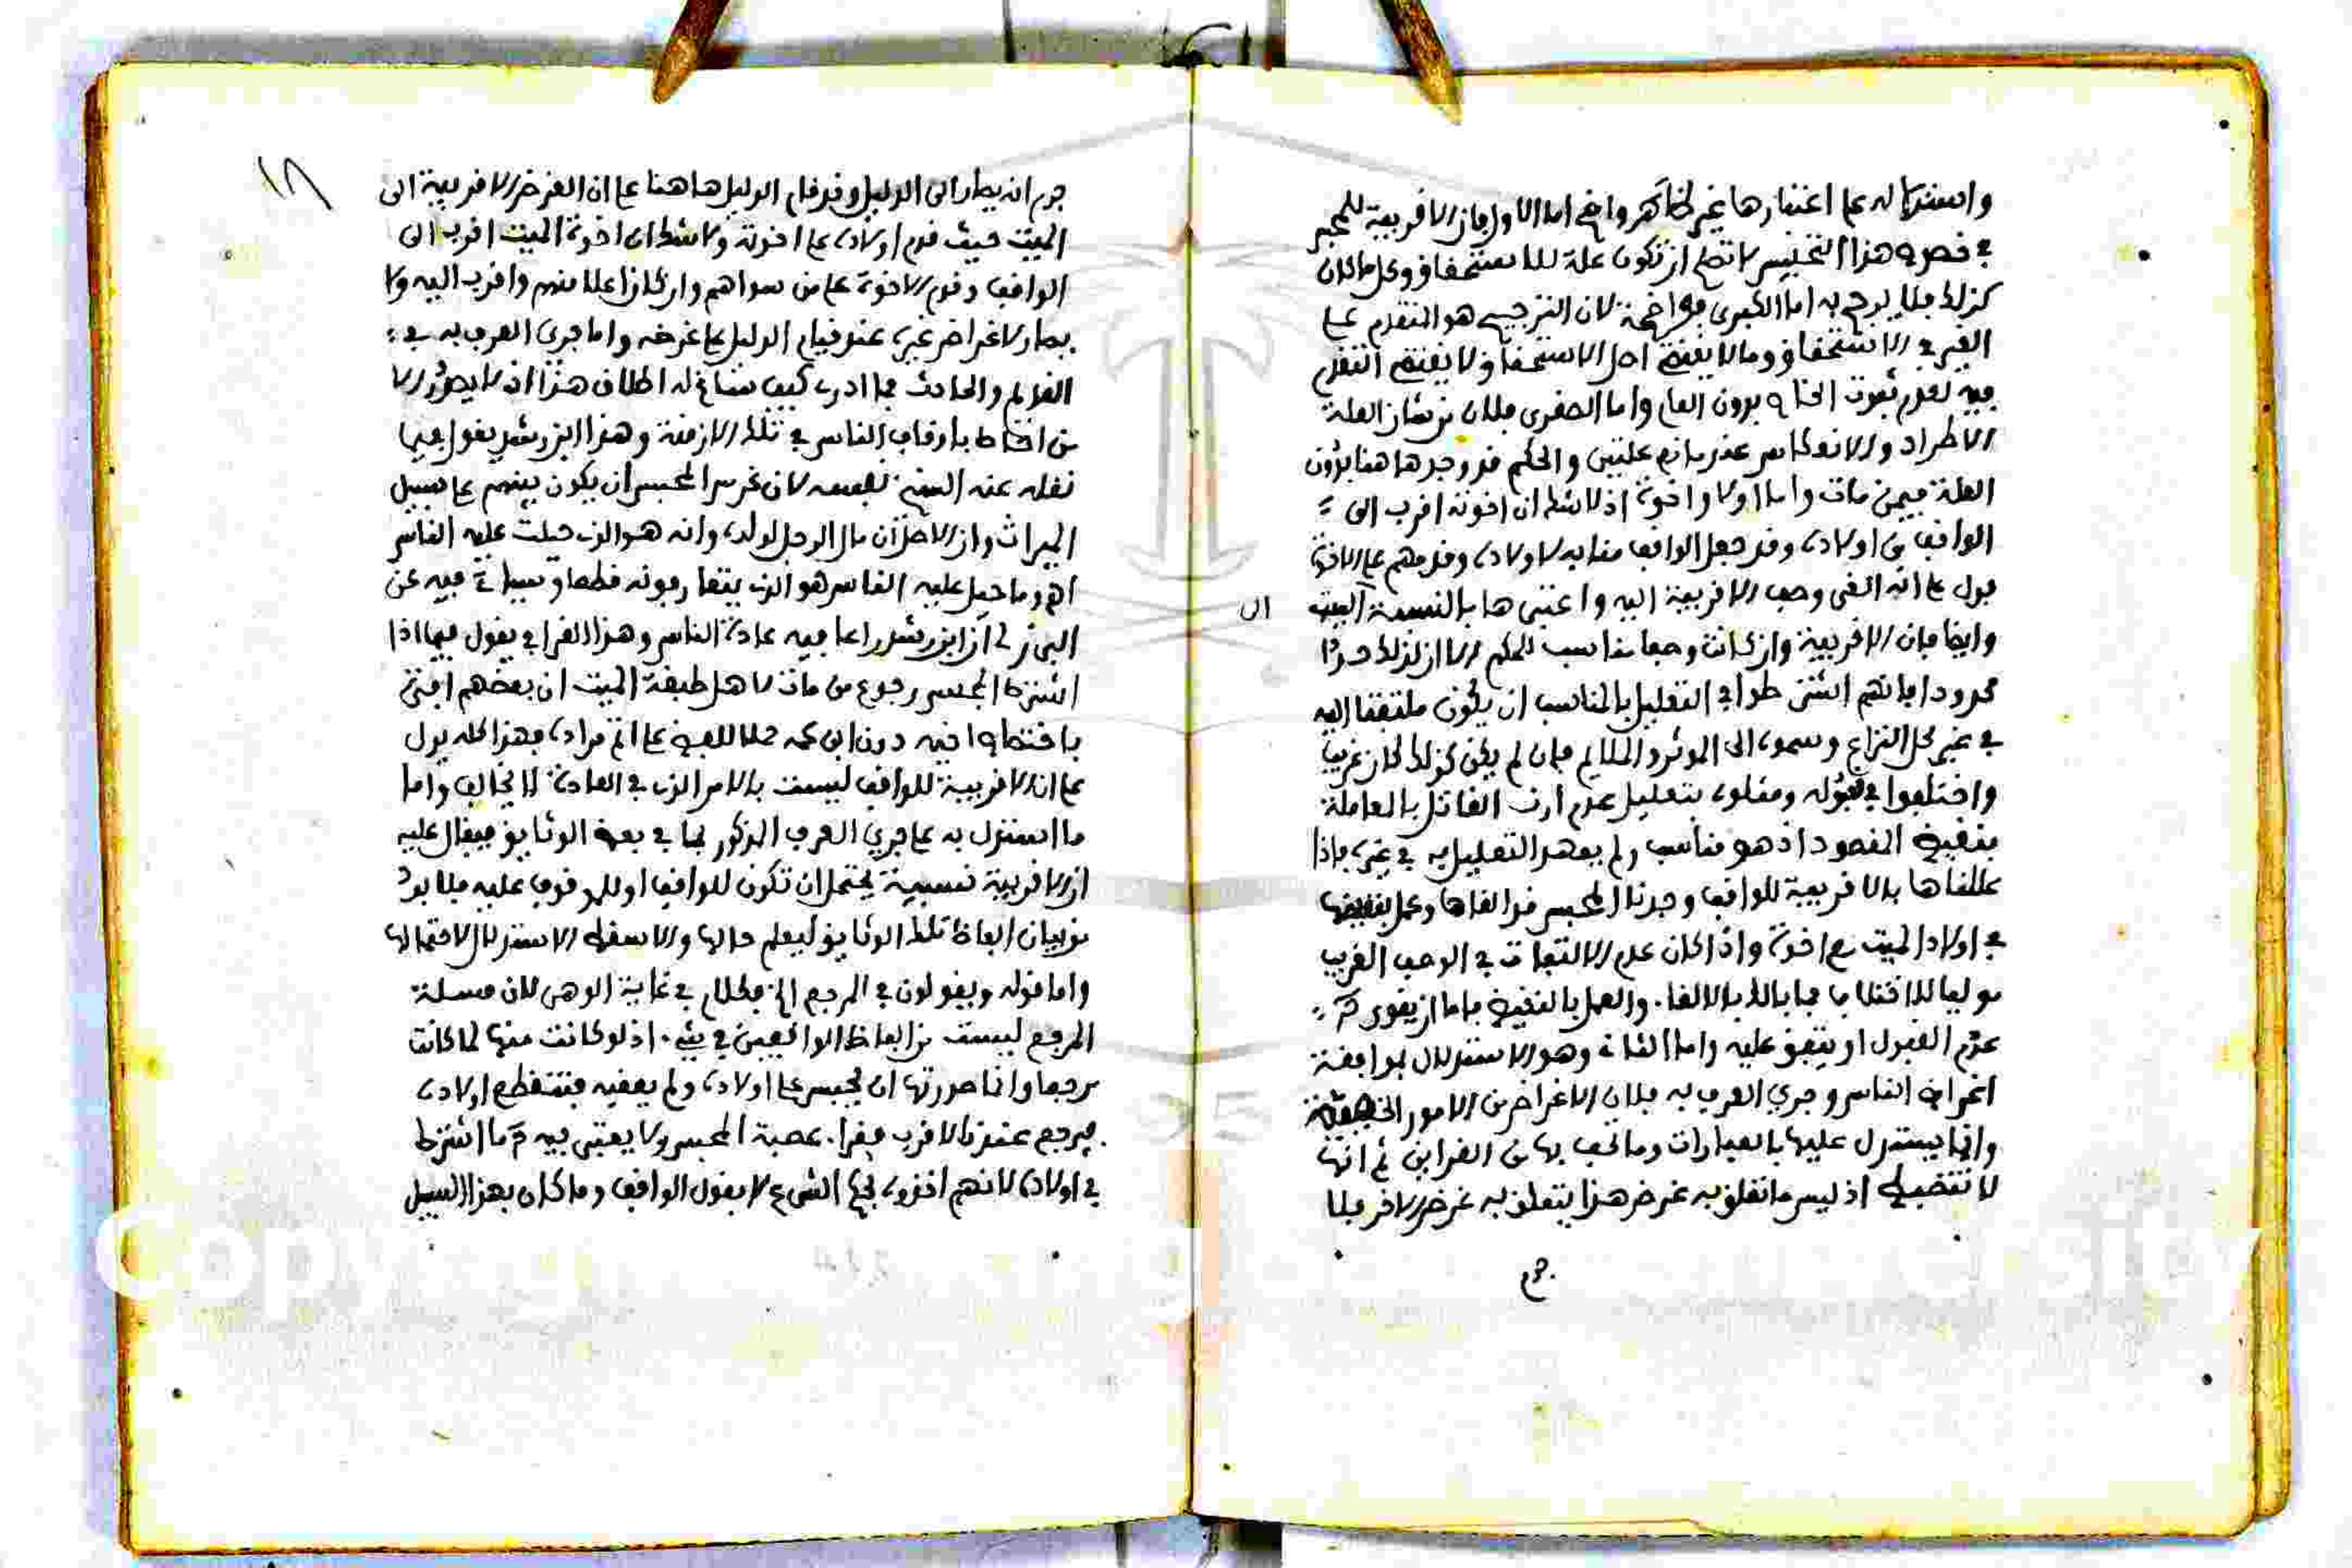 واستدلاله على اعتبارها غير ظاهر واضح اما الاول فان الاقربية للمحبس
في خصوص هذا التحبيس لا تصلح ان تكون علة للاستحقاق وكل ما كان
كذلك فلا يرجح به اما الكبرى فواضحة لان الترجيح هو التقدم على
الغير في الاستحقاق وما لا يقتضي اصل الاستحقاق لا يقتضي التقدم
فيه لعدم ثبوت الخاص بدون العام واما الصغرى فلان من شان العلة
الاطراد والانعكاس عند مانع علتين والحكم قد وجد هاهنا بدون
العلة فيمن مات واما اولا واخوة اذ لا شك ان اخوته اقرب الى
الواقف من اولاده وقد جعل الواقف مقابه لاولاده وقدمهم على الاخوة
فدل على انه الغى وصف الاقربية اليه واعتبرها بالنسبة الى الميت
وايضا فان الاقربية وان كانت وصفا مناسب للحكم الا ان لذلك حدا
محدودا فانهم اشترطوا في التعليل بالمناسب ان يكون ملتفتا اليه
في غير محل النزاع وسموه الى الموثر والملايم فان لم يكن كذلك كان غريبا
واختلفوا في قبوله ومثلوه بتعليل عدم ارث القاتل بالمعاملة
بنقيض المقصود اذ هو مناسب ولم يعهد التعليل به في غيره فاذا
عللناها بالاقربية للواقف وجدنا المحبس قد الغاها وعمل بنقيضها
في اولاد الميت مع اخوة واذا كان عدم الالتفات في الوصف الغريب
مولعا للاختلاف فما بالك بالالغاء والعمل بالنقيض فاما ان يقوى
عدم القبول او يتفق عليه واما الثاني وهو الاستدلال بموافقة
اغراض الناس وجري العرف به فلان الاغراض من الامور الخفية
وانما يستدل عليها بالعبارات وما تحف بها من القراين ثم انها
لا تنضبط اذ ليس ما تعلق به غرض هذا يتعلق به غرض الاخر فلا
جرم
١٨
جرم انه يصار الى الدليل وقد قام الدليل هاهنا على ان الغرض الاقربية الى
الميت حيث قدم اولاده على اخوته ولا شك ان اخوة الميت اقرب الى
الواقف وقدم الاخوة على من سواهم وان كان اعلا منهم واقرب اليه ولا
يصار لاغراض غيره عند قيام الدليل على غرضه واما جري العرف به في
القديم والحادث فما ادري كيف ساغ له اطلاق هذا اذ لا يصدر الا
من احاط باوقاف الناس في تلك الازمنة وهذا ابن رشد يقول فيما
نقله عنه الشيخ نفسه لان غرض المحبس ان يكون بينهم على سبيل
الميراث وان الاصل ان مال الرجل لولده وانه هو الذي جبلت عليه الناس
اه وما جبل عليه الناس هو الذي يتعارفونه قطعا وسياتي فيه عن
البرزلي ان ابن رشد راعا فيه عادة الناس وهذا القرافي يقول فيما اذا
اشترط المحبس رجوع من مات لاهل طبقة الميت ان بعضهم افتى
باختصاص اخيه دون ابن عمه حملا للفظ على اتم مراده فهذا كله يدل
على ان الاقربية للواقف ليست بالامر الذي في العادة لا يخالف واما
ما استدل به على جري العرف المذكور بما في بعض الوثايق فيقال عليه
ان الاقربية نسبية يحتمل ان تكون للواقف او للموقوف عليه فلا بد
من بيان الفاظ تلك الوثايق ليعلم حالها والا سقط الاستدلال لاحتمالها
واما قوله ويقولون في المرجع الخ فكلام في غاية الوهي لان مسلة
المرجع ليست من الفاظ الواقفين في شيء اذ لو كانت منها لما كانت
مرجعا وانما صورتها ان يحبس على اولاده ولم يعقبه فتنقطع اولاده
فيرجع عندنا لاقرب فقراء عصبة المحبس ولا يعتبر فيه ما اشترط
في اولاده لانهم اخذوه بحكم الشرع لا بقول الواقف وما كان بهذا السبيل